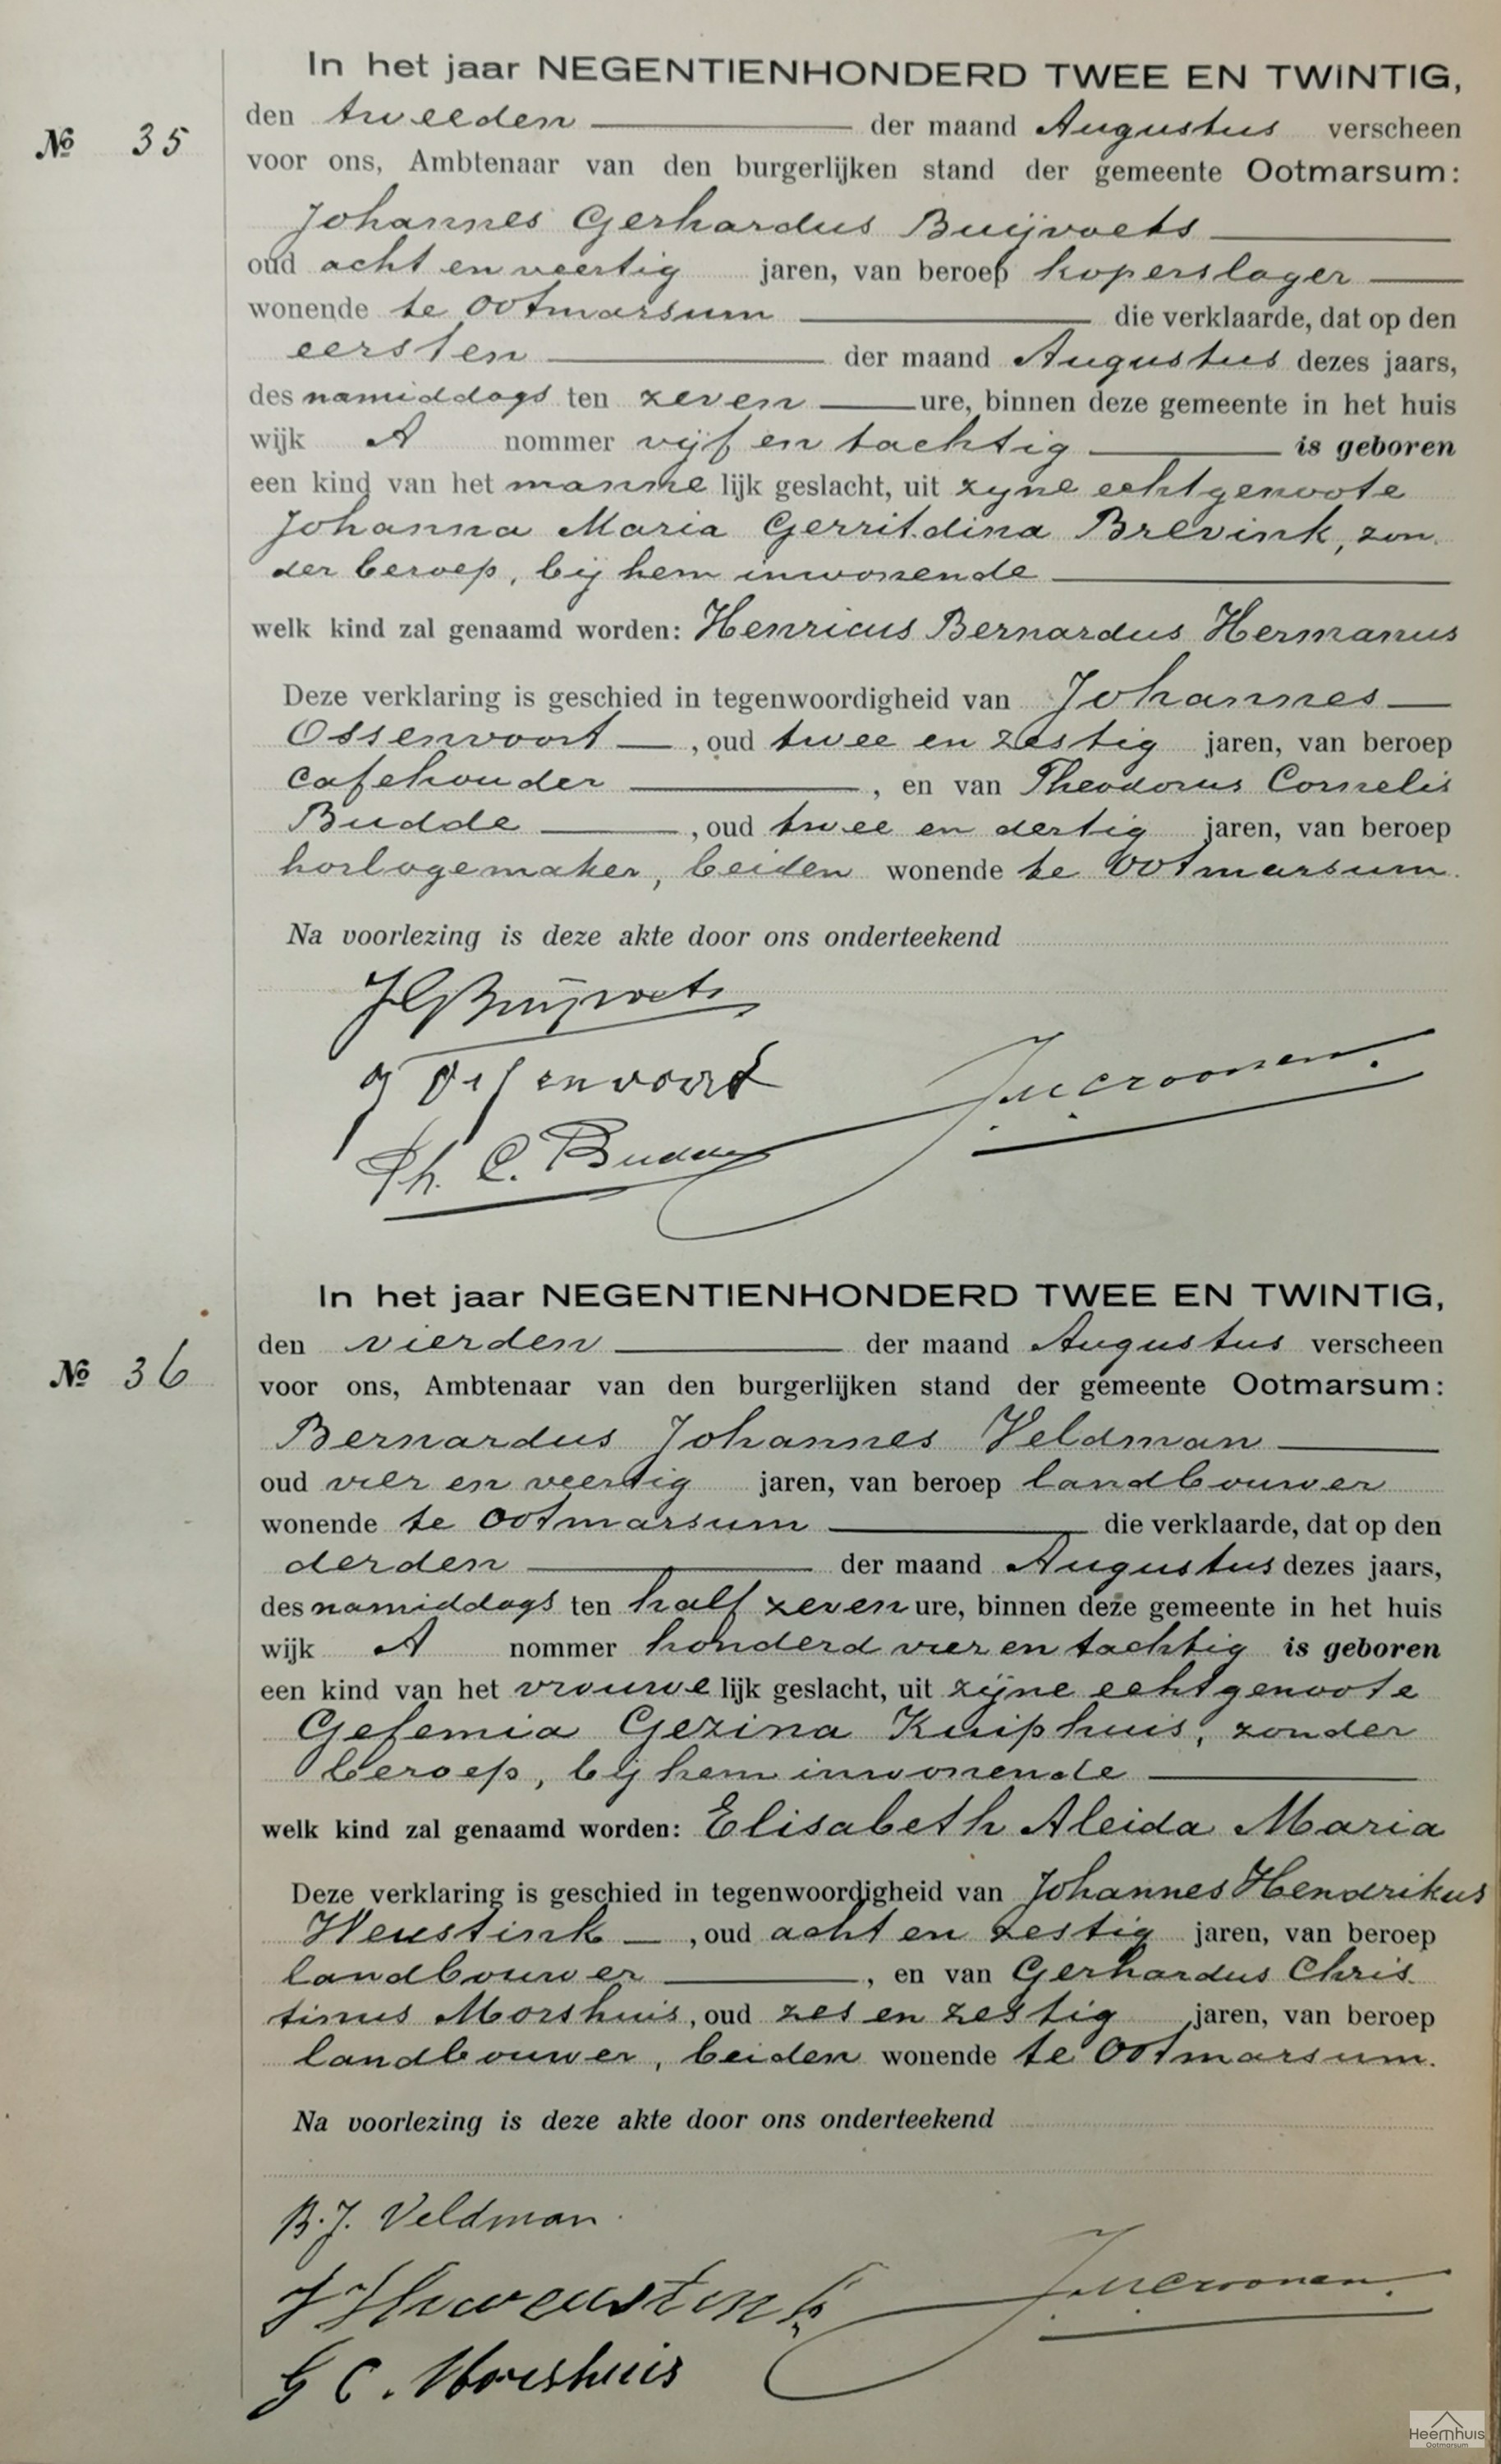 In het jaar NEGENTIENHONDERD TWEE EN TWINTIG,
den tweeden der maand Augustus verscheen
№ 35
voor ons, Ambtenaar van den burgerlijken stand der gemeente Ootmarsum:
Johannes Gerhardus Buijvoets
oud acht en veertig jaren, van beroep koperslager
wonende te Ootmarsum die verklaarde, dat op den
eersten der maand Augustus dezes jaars,
des namiddags ten zeven ure, binnen deze gemeente in het huis
wijk A nommer vijf en tachtig is geboren
een kind van het mannelijk geslacht, uit zijne echtgenoote
Johanna Maria Gerritdina Brevink, zon
der beroep, bij hem inwonende
welk kind zal genaamd worden: Henricus Bernardus Hermanus
Deze verklaring is geschied in tegenwoordigheid van Johannes
Ossenvoort, oud twee en zestig jaren, van beroep
cafehouder, en van Theodorus Cornelis
Budde, oud twee en dertig jaren, van beroep
horlogemaker, beiden wonende te Ootmarsum.
Na voorlezing is deze akte door ons onderteekend
JGBuijvoets
J Ossenvoort
Th. C. Budde
In het jaar NEGENTIENHONDERD TWEE EN TWINTIG,
den vierden der maand Augustus verscheen
№ 36
voor ons, Ambtenaar van den burgerlijken stand der gemeente Ootmarsum:
Bernardus Johannes Veldman
oud vier en veertig jaren, van beroep landbouwer
wonende te Ootmarsum die verklaarde, dat op den
derden der maand Augustus dezes jaars,
des namiddags ten half zeven ure, binnen deze gemeente in het huis
wijk A nommer honderd vier en tachtig is geboren
een kind van het vrouwelijk geslacht, uit zijne echtgenoote
Gefemia Gezina Kuiphuis, zonder
beroep, bij hem inwonende
welk kind zal genaamd worden: Elisabeth Aleida Maria
Deze verklaring is geschied in tegenwoordigheid van Johannes Hendrikus
Weustink, oud acht en zestig jaren, van beroep
landbouwer, en van Gerhardus Chris
tinus Morshuis, oud zes en zestig jaren, van beroep
landbouwer, beiden wonende te Ootmarsum.
Na voorlezing is deze akte door ons onderteekend
B.J. Veldman
J H weustink
G C. Morshuis
Heemhuis
Ootmarsum